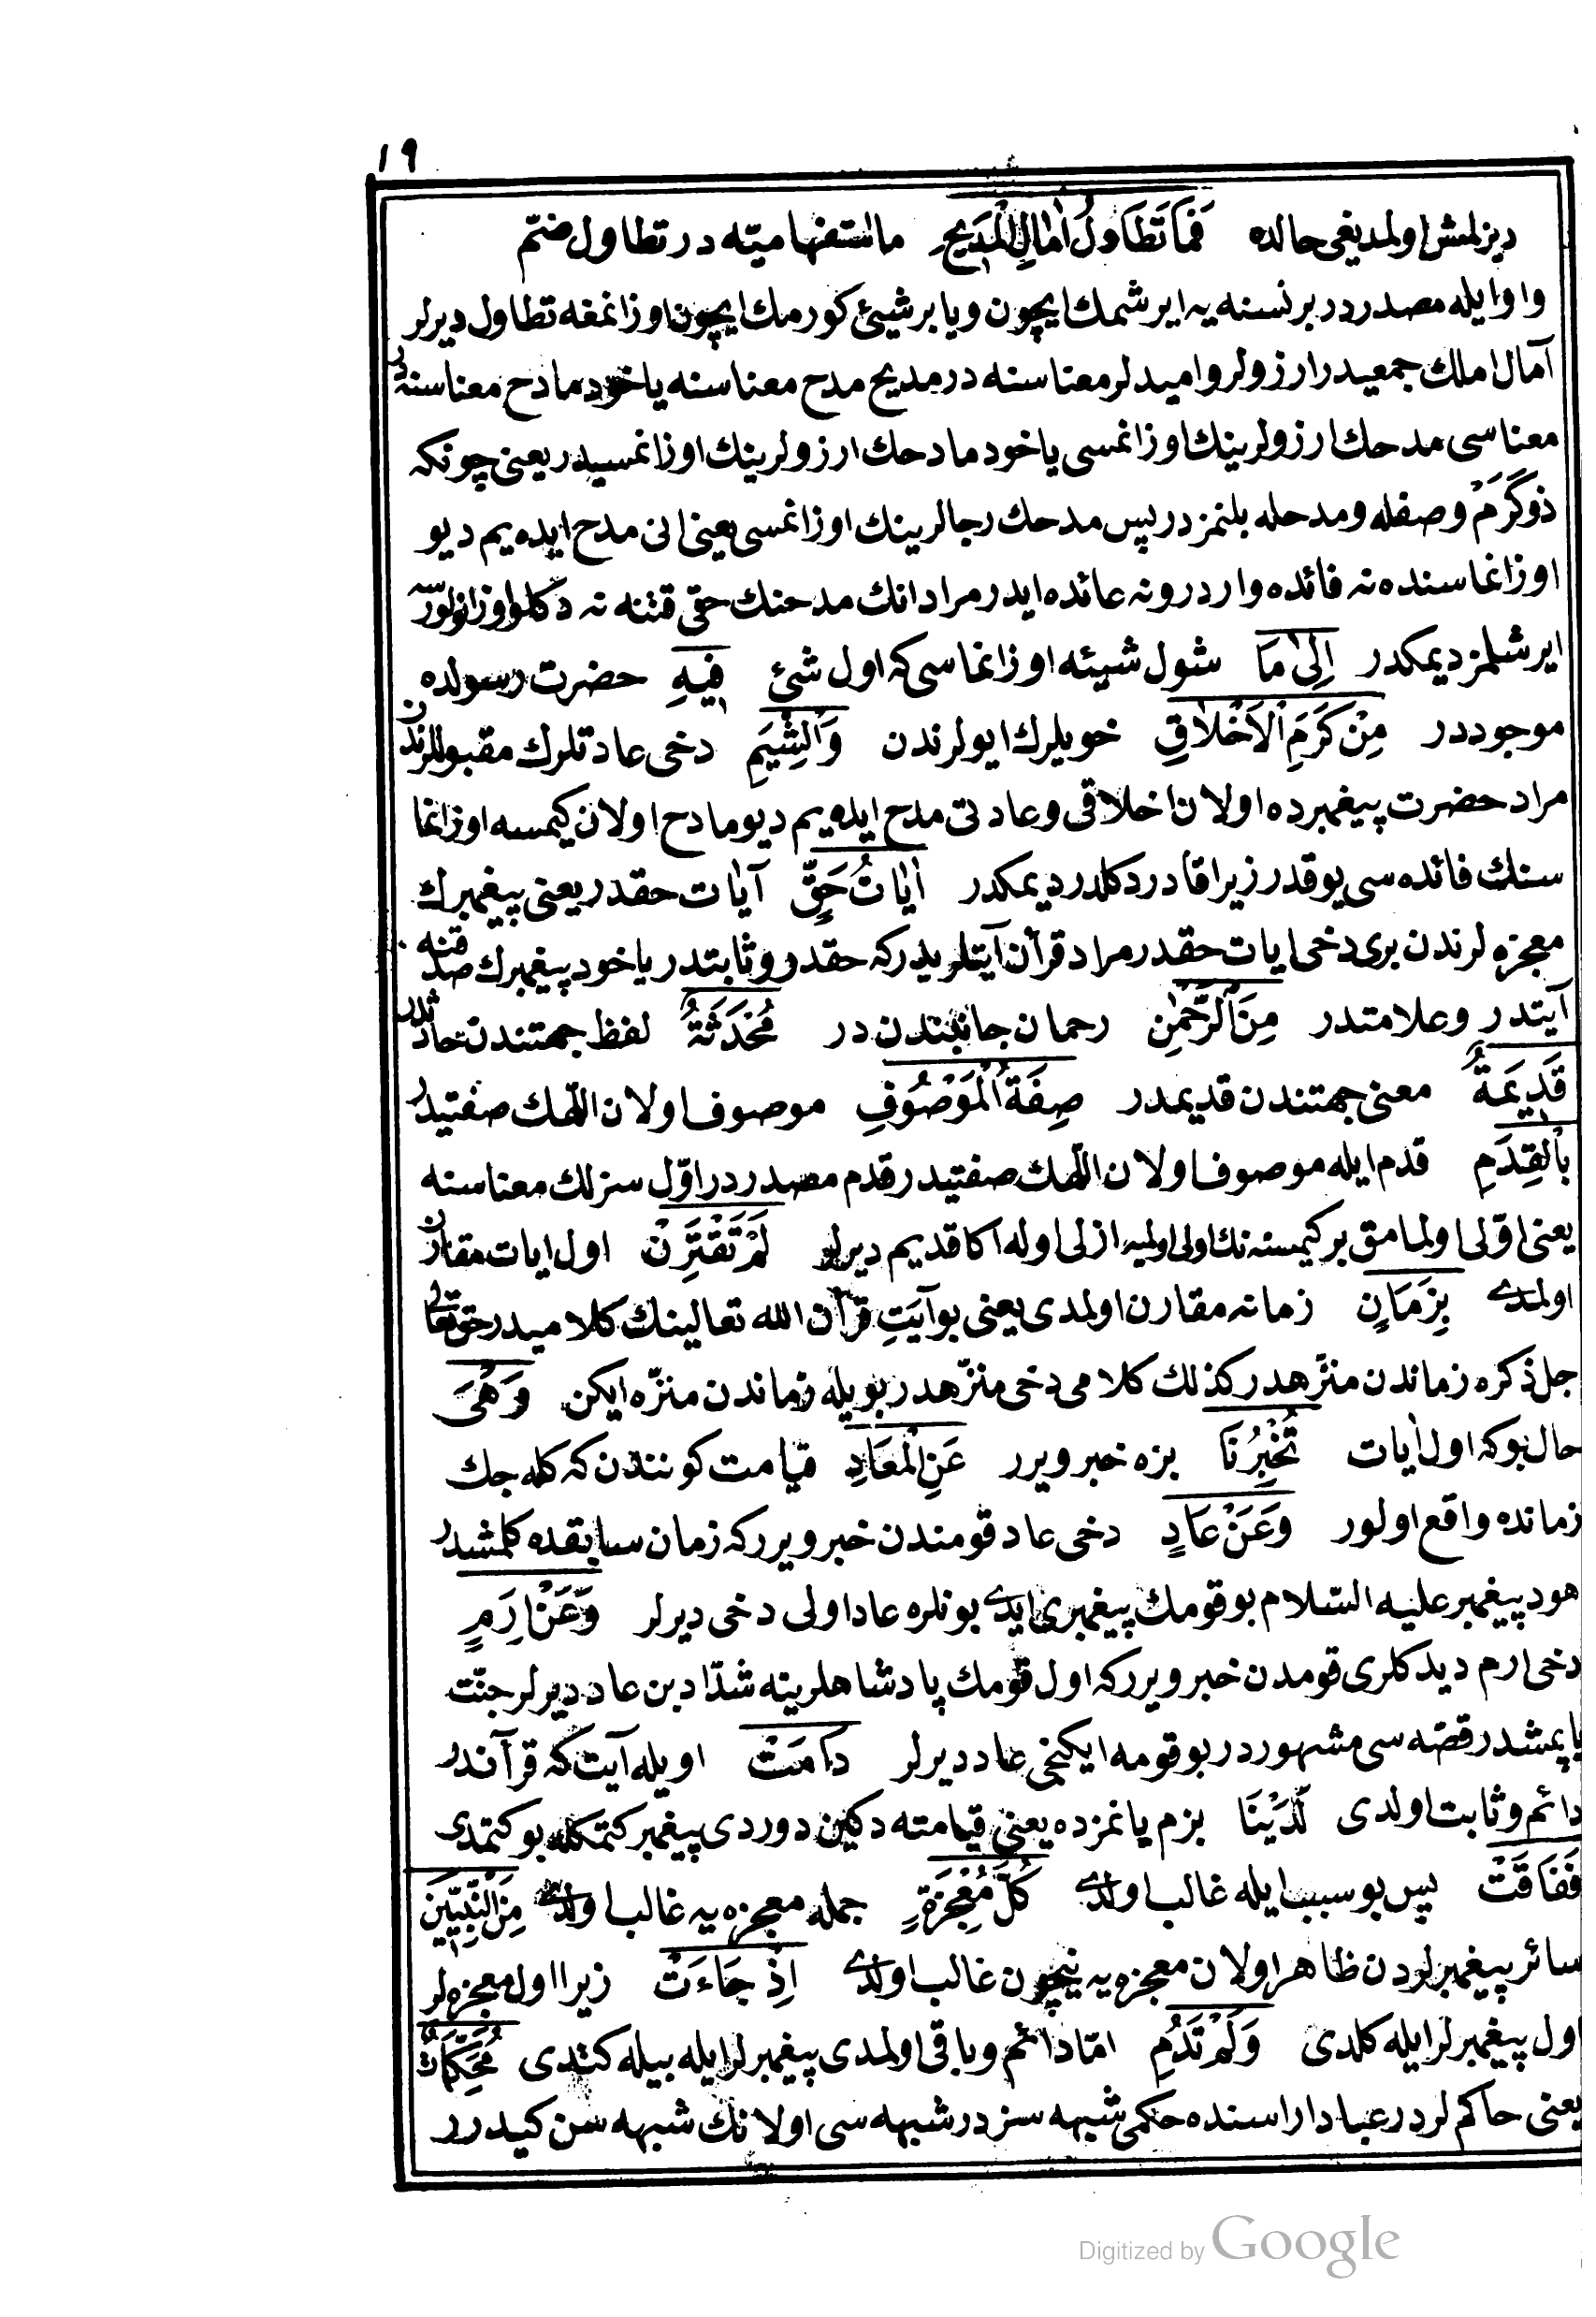 ١٩
ديزلمش اولمديغى حالده فَمَا تَطَاوَلُ اٰمَالِ الْمَدِيحِ ما استفهاميّه در تطاول ضمّ
واو ايله مصدردر برنسنه يه ايرشمك ايچون ويا برشيئ كورمك ايچون اوزانمغه تطاول ديرلر
آمال املك جمعيدر ارزولر واميدلر معناسنه در مديح مدح معناسنه ياخود مادح معناسنه در
معناسى مدحك ارزولرينك اوزانمسى ياخود مادحك ارزولرينك اوزانمسيدر يعنى چونكه
ذوكَرَمْ وصفله ومدحله بلنمز در پس مدحك رجالرينك اوزانمسى يعنى انى مدح ايده يم ديو
اوزانماسنده نه فائده واردر ونه عائده ايدر مراد انك مدحنك حقى قتنه نه دكلو اوزانولورسه
ايرشلمز ديمكدر اِلٰى مَا شول شيئه اوزانماسى كه اول شئ فِيهِ حضرت رسولده
موجوددر مِنْ كَرَمِ الْاَخْلَاقِ خويلرك ايولرندن وَالشِّيَمِ دخى عادتلرك مقبوللرندن
مراد حضرت پيغمبرده اولان اخلاقى وعادتى مدح ايده يم ديو مادح اولان كيمسه اوزانما
سنك فائده سى يوقدر زيرا قادر دكلدر ديمكدر اٰيَاتُ حَقٍّ آيات حقدر يعنى پيغمبرك
معجزه لرندن برى دخى ايات حقدر مراد قرآن آيتلريدر كه حقدر وثابتدر ياخود پيغمبرك صدقنه
آيتدر وعلامتدر مِنَ الرَّحْمٰنِ رحمان جانبندن در مُحْدَثَةٌ لفظ جهتندن حادثدر
قَدِيمَةٌ معنى جهتندن قديمدر صِفَةُ الْمَوْصُوفِ موصوف اولان اللّهك صفتيدر
بِالْقِدَمِ قدم ايله موصوف اولان اللّهك صفتيدر قدم مصدردر اوّل سزلك معناسنه
يعنى اوّلى اولمامق بركيمسنه نك اولى اولميه ازلى اوله اكا قديم ديرلر لَمْ تَقْتَرِنْ اول ايات مقارن
اولمدى بِزَمَانٍ زمانه مقارن اولمدى يعنى بو آيَتِ قرآن الله تعالينك كلاميدر حق تعالى
جل ذكره زماندن منزّهدر كذلك كلامى دخى منزّهدر بويله زماندن منزّه ايكن وَهْىَ
حال بوكه اول ايات تُخْبِرُنَا بزه خبر ويرر عَنِ الْمَعَادِ قيامت كوننڭدن كه كله جك
زمانده واقع اولور وَعَنْ عَادٍ دخى عاد قومندن خبر ويرر كه زمان سابقده كلمشدر
هود پيغمبر عليه السّلام بو قومك پيغمبرى ايدى بونلره عاد اولى دخى ديرلر وَعَنْ اِرَمٍ
دخى ارم ديدكلرى قومدن خبر ويرر كه اول قومك پادشاهلرينه شدّاد بن عاد ديرلر جنّت
ياپمشدر قصّه سى مشهوردر بو قومه ايكنجى عاد ديرلر دَامَتْ اويله آيت كه قرآندر
دائم وثابت اولدى لَدَيْنَا بزم يانمزده يعنى قيامته دكين دوردى پيغمبر كتمكله بو كتمدى
فَفَاقَتْ پس بو سبب ايله غالب اولدى كُلَّ مُعْجِزَةٍ جمله معجزه يه غالب اولدى مِنَ النَّبِيّينَ
سائر پيغمبرلردن ظاهر اولان معجزه يه نيچون غالب اولدى اِذْ جَاءَتْ زيرا اول معجزه لر
اول پيغمبرلر ايله كلدى وَلَمْ تَدُمِ امّا دائم وباقى اولمدى پيغمبرلر ايله بيله كتدى مُحَكَّمَاتٌ
يعنى حاكم لردر عباد اراسنده حكمى شبهه سزدر شبهه سى اولانك شبهه سن كيدرر
Digitized by Google